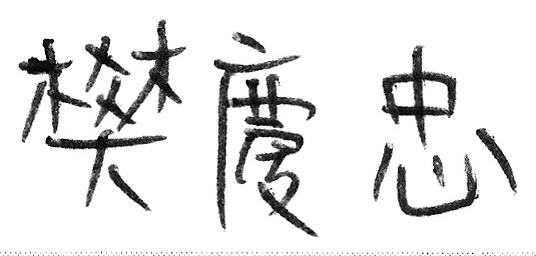 樊慶忠